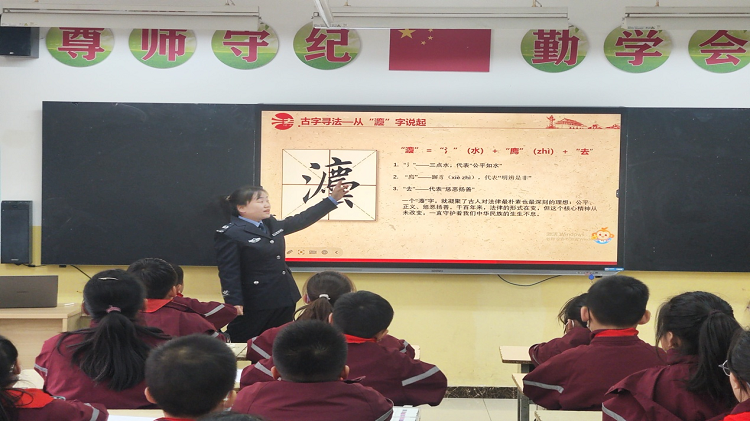 尊师守纪 勤学会
古字寻法—从“灋”字说起
“灋” = “氵”（水）+ “廌”（zhì）+ “去”
灋
1. “氵”——三点水，代表“公平如水”
2. “廌”——獬豸（xiè zhì），代表“明辨是非”
3. “去”——代表“惩恶扬善”
一个“灋”字，就凝聚了古人对法律最朴素也最深刻的理想：公平、
正义、惩恶扬善。千百年来，法律的形式在变，但这个核心精神从
未改变，一直守护着我们中华民族的生生不息。